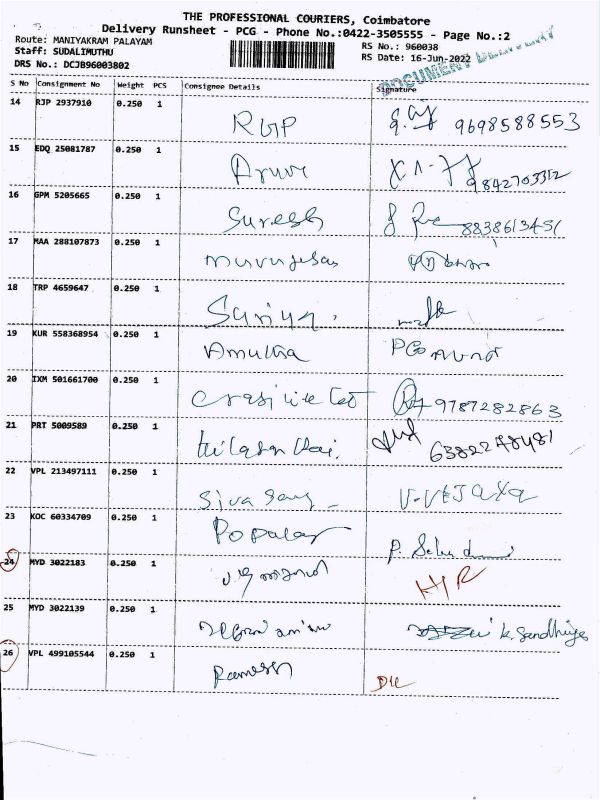 THE PROFESSIONAL COURIERS, Coimbatore
Delivery Runsheet - PCG - Phone No.:0422-3505555 - Page No.:2
Route: MANIYAKRAM PALAYAM
RS No.: 960038
Staff: SUDALIMUTHU
RS Date: 16-Jun-2022
DRS No.: DCJB96003802
DOCUMENT DELIVERY
S No Consignment No Weight PCS Consignee Details Signature
14 RJP 2937910 0.250 1 9698588553
15 EDQ 25081787 0.250 1 Aruvi 9842703312
16 GPM 5205665 0.250 1 Suresh 8838613451
17 MAA 288107873 0.250 1 murugesan
18 TRP 4659647 0.250 1 Suriya.
19 KUR 558368954 0.250 1 Amutha
20 IXM 501661700 0.250 1 9787282863
21 PRT 5009589 0.250 1
22 VPL 213497111 0.250 1 Siva
23 KOC 60334709 0.250 1 Popular P.
24 MYD 3022183 0.250 1
25 MYD 3022139 0.250 1 k. Sandhiya
26 VPL 499105544 0.250 1 Ramesh